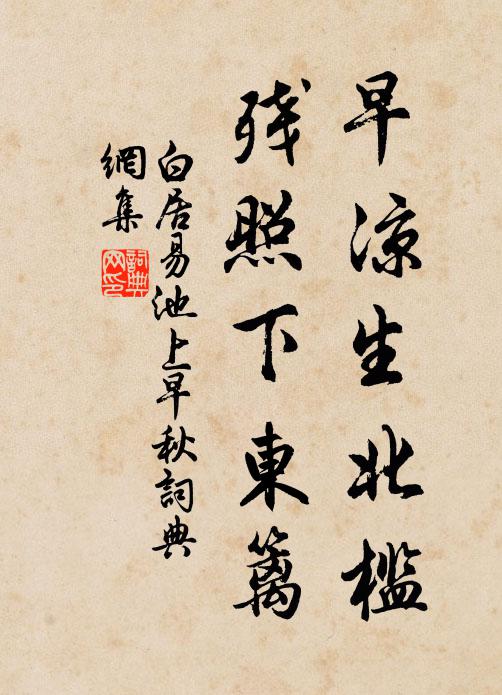 早凉生北槛
残照下東篱
白居易池上早秋詞典
網集
詞典
网印